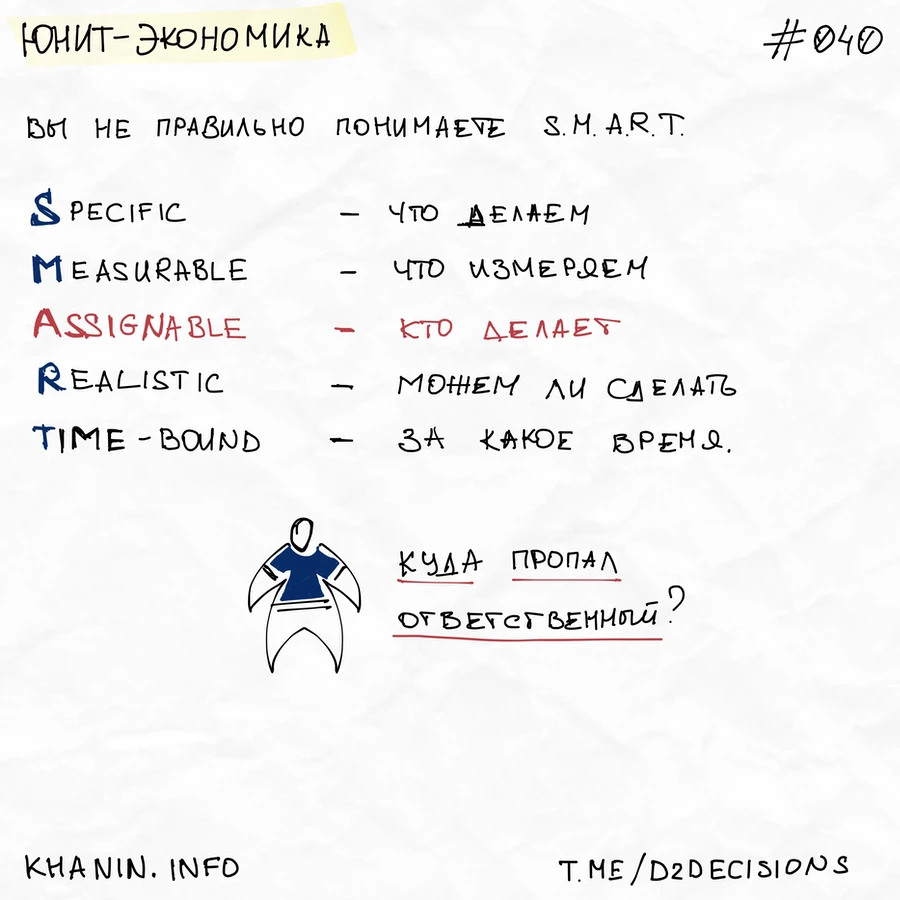 ЮНИТ-ЭКОНОМИКА
#040
ВЫ НЕ ПРАВИЛЬНО ПОНИМАЕТЕ S.M.A.R.T.
SPECIFIC — ЧТО ДЕЛАЕМ
MEASURABLE — ЧТО ИЗМЕРЯЕМ
ASSIGNABLE — КТО ДЕЛАЕТ
REALISTIC — МОЖЕМ ЛИ СДЕЛАТЬ
TIME-BOUND — ЗА КАКОЕ ВРЕМЯ.
КУДА ПРОПАЛ
ОТВЕТСТВЕННЫЙ?
KHANIN.INFO
T.ME/D2DECISIONS